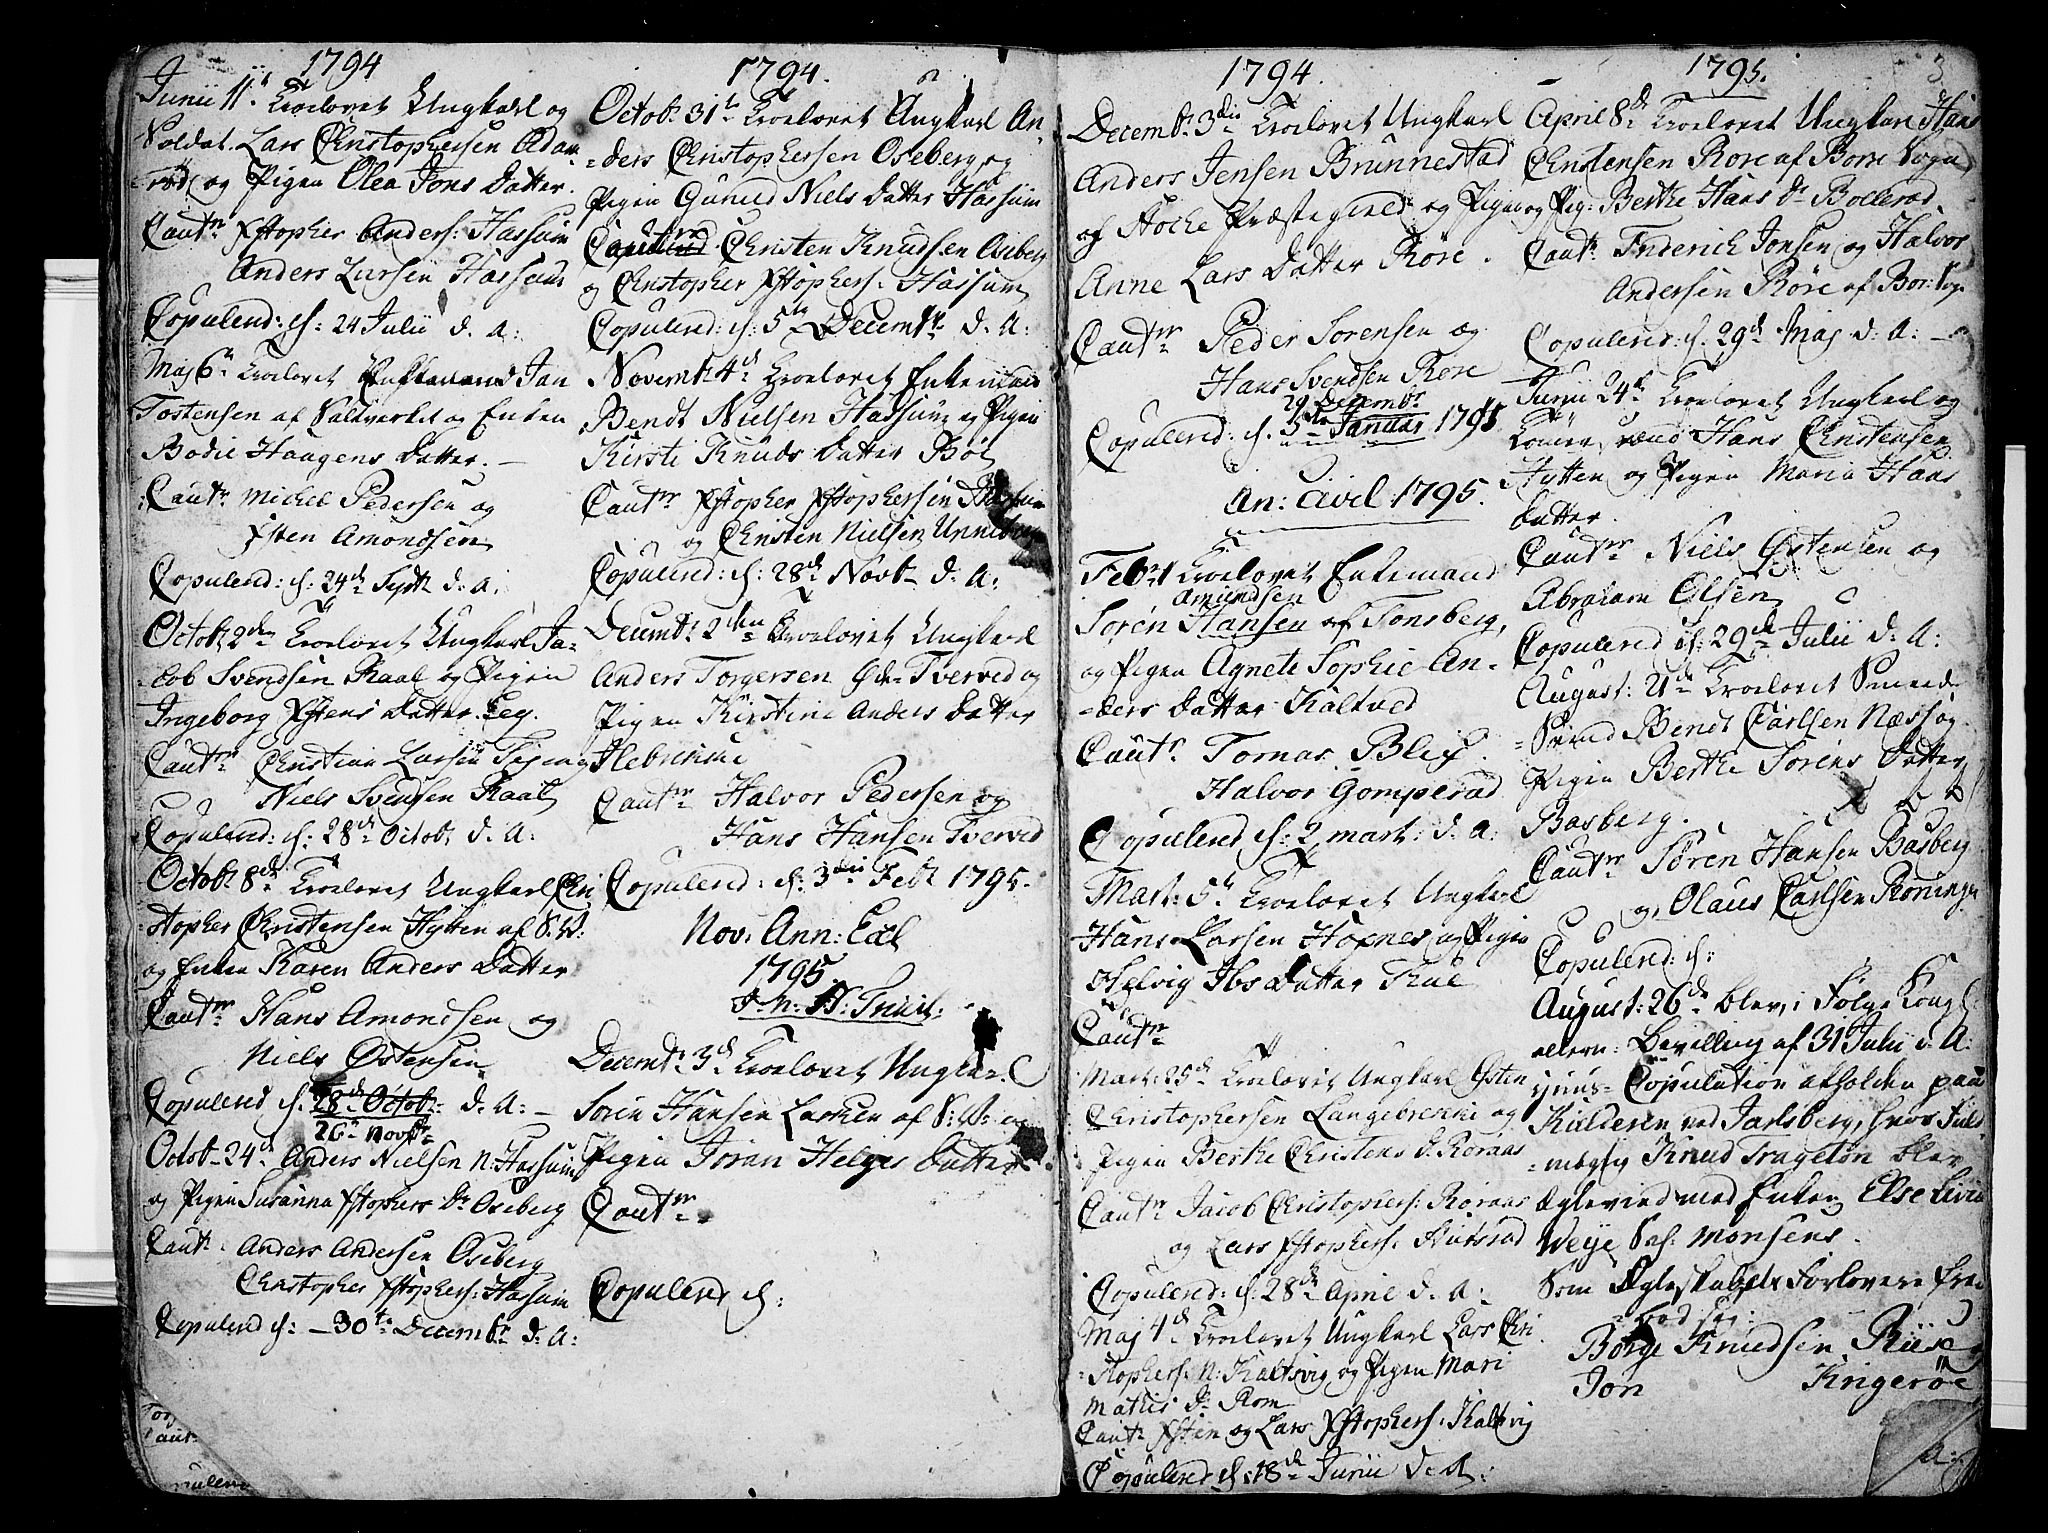 1794
Junii 11t Troelovet Ungkarl og
Soldat Lars Christophersen Adam-
-rød og Pigen Olea Jons Datter.
Cautnr Xstopher Anders: Hassum
Anders Larsen Hassum
Copulend: s: 24 Julii d: A:
Maj 6te Troelovet Jan
Tostensen af Saltverket og Enken
Bodil Haagens Datter. —
Cautnr Michel Pedersen og
Xsten Amondsen
Copulend: s: 24de Septb d: A:
Octob: 2den Troelovet Ungkarl Ja-
-cob Svendsen Raal og Pigen
Ingeborg Xstens Datter Eeg.
Cautnr Christian Larsen
Niels Svendsen Raal
Copulend: s: 28de Octob: d: A:
Octob: 8de Troelovet Ungkarl Chri
stopher Christensen Hytten af S: V:
og Enken Karen Anders Datter
Cautnr Hans Amondsen og
Niels Østensen
Copulend s: 28de Octob: d: A: —
26te Novbr
Octob 24de Anders Nielsen N: Hassum
og Pigen Susanna Xstophers Dr Oseberg
Caut: Anders Andersen Oseberg
Christopher Xstophers: Hassum
Copulend s: — 30te Decembr d: A:
1794.
Octob: 31te Troelovet Ungkarl An-
-ders Christophersen Oseberg og
Pigen Gunild Niels Datter Hassum
Cautnr Christen Knudsen Oseberg
og Christopher Xstophers: Hassum
Copulend: s: 5te Decembr d: A:
Novemb: 4de Troelovet Enkemand
Bendt Nielsen Hassum og Pigen
Kirsti Knuds Datter Bøe
Cautnr Xstopher Xstophersen
og Christen Nielsen
Copulend: s: 28de Novb d: A:
Decemb: 2den Troelovet Ungkarl
Anders Torgersen Tverved og
Pigen Kirstine Anders Datter
Cautnr Halvor Pedersen og
Hans Hansen Tverved
Copulend: s: 3die Feb: 1795.
Nov: Ann: Eccl
1795
Decemb: 3de Troelovet Ungkarl
Søren Hansen af S: V: og
Pigen Joran Helges Datter
Cautnr
Copulend s:
1794.
Decemb: 3die Troelovet Ungkarl
Anders Jensen Brunnestad
af Præstegield og Pigen
Anne Lars Datter Røre.
Cautnr Peder Sørensen og
Hans Svendsen Røre
29 Decembr
Copulend: s. 5te Januar 1795
An: Civil 1795.
Febr: Troelovet Enkemand
Amundsen
Søren Hansen af Tønsberg,
og Pigen Agnete Sophie An-
-ders Datter Kaltved
Cautr Tomas Blix
Halvor Gomperød
Copulend s: 2 Mart: d: A:
Mart: 5te Troelovet Ungkarl
Hans Larsen Hopnes og Pigen
Helvig Ibs Datter
Cautnr
Mart: 25de Troelovet Ungkarl Østen
Christophersen Langebrekke og
Pigen Berthe Christens D: Roraas
Cautnr Jacob Christophers: Roraas
og Lars Xstophers:
Copulend: s: 28de April d. A:
Maj 4de Troelovet Ungkarl Lars Chri
-stophers: N: Kaltsvig og Pigen Mari
Mathis Dr Rom
Cautr Xsten og Lars Xstophers: Kaltsvig
Copulend s: 18de Junii d: A:
1795.
April 8de Troelovet Ungkarl Hans
Christensen Røre af Borre Sogn
og Pig: Berthe Hans Dr Bollerød
Cautr Friderich Jonsen og Halvor
Andersen Røre af Bor: Sogn
Copulend: s. 29de Maj d: A: —
Junii 24de Troelovet Ungkarl og
Hans Christensen
Hytten og Pigen Maria Hans
datter.
Cautnr Niels Østensen og
Abraham Olsen
Copulend s: 29de Julii d: A:
August: 21de Troelovet Smed
Svend Bendt Carlsen Næss og
Pigen Berthe Sørens Datter
Basberg.
Cautnr Søren Hansen Basberg
og, Olaus Carlsen Roninge
Copulend: s:
August: 26de blev, i Følge Kongl:
allern: Bevilling af 31 Julii d: A:
Copulation afholden paa
ved Jarlsberg, hvor
-mægtig Knud Trageton blev
Ægteviet med Enken Else Livia
Weye Sal: Monsens.
Som Ægteskabets Forlovere frem
-stod sig:
Børge Knudsen Riise og
Jon Krigerøe